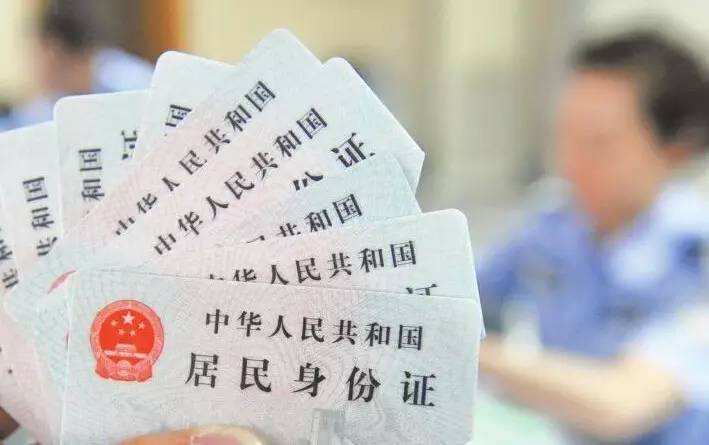 共和国
共和国
证
国
中华人民共和国
中华人民共和国
份证
中华人民共和国
中华人民共和国
证
中华人民共和国
居民身份证